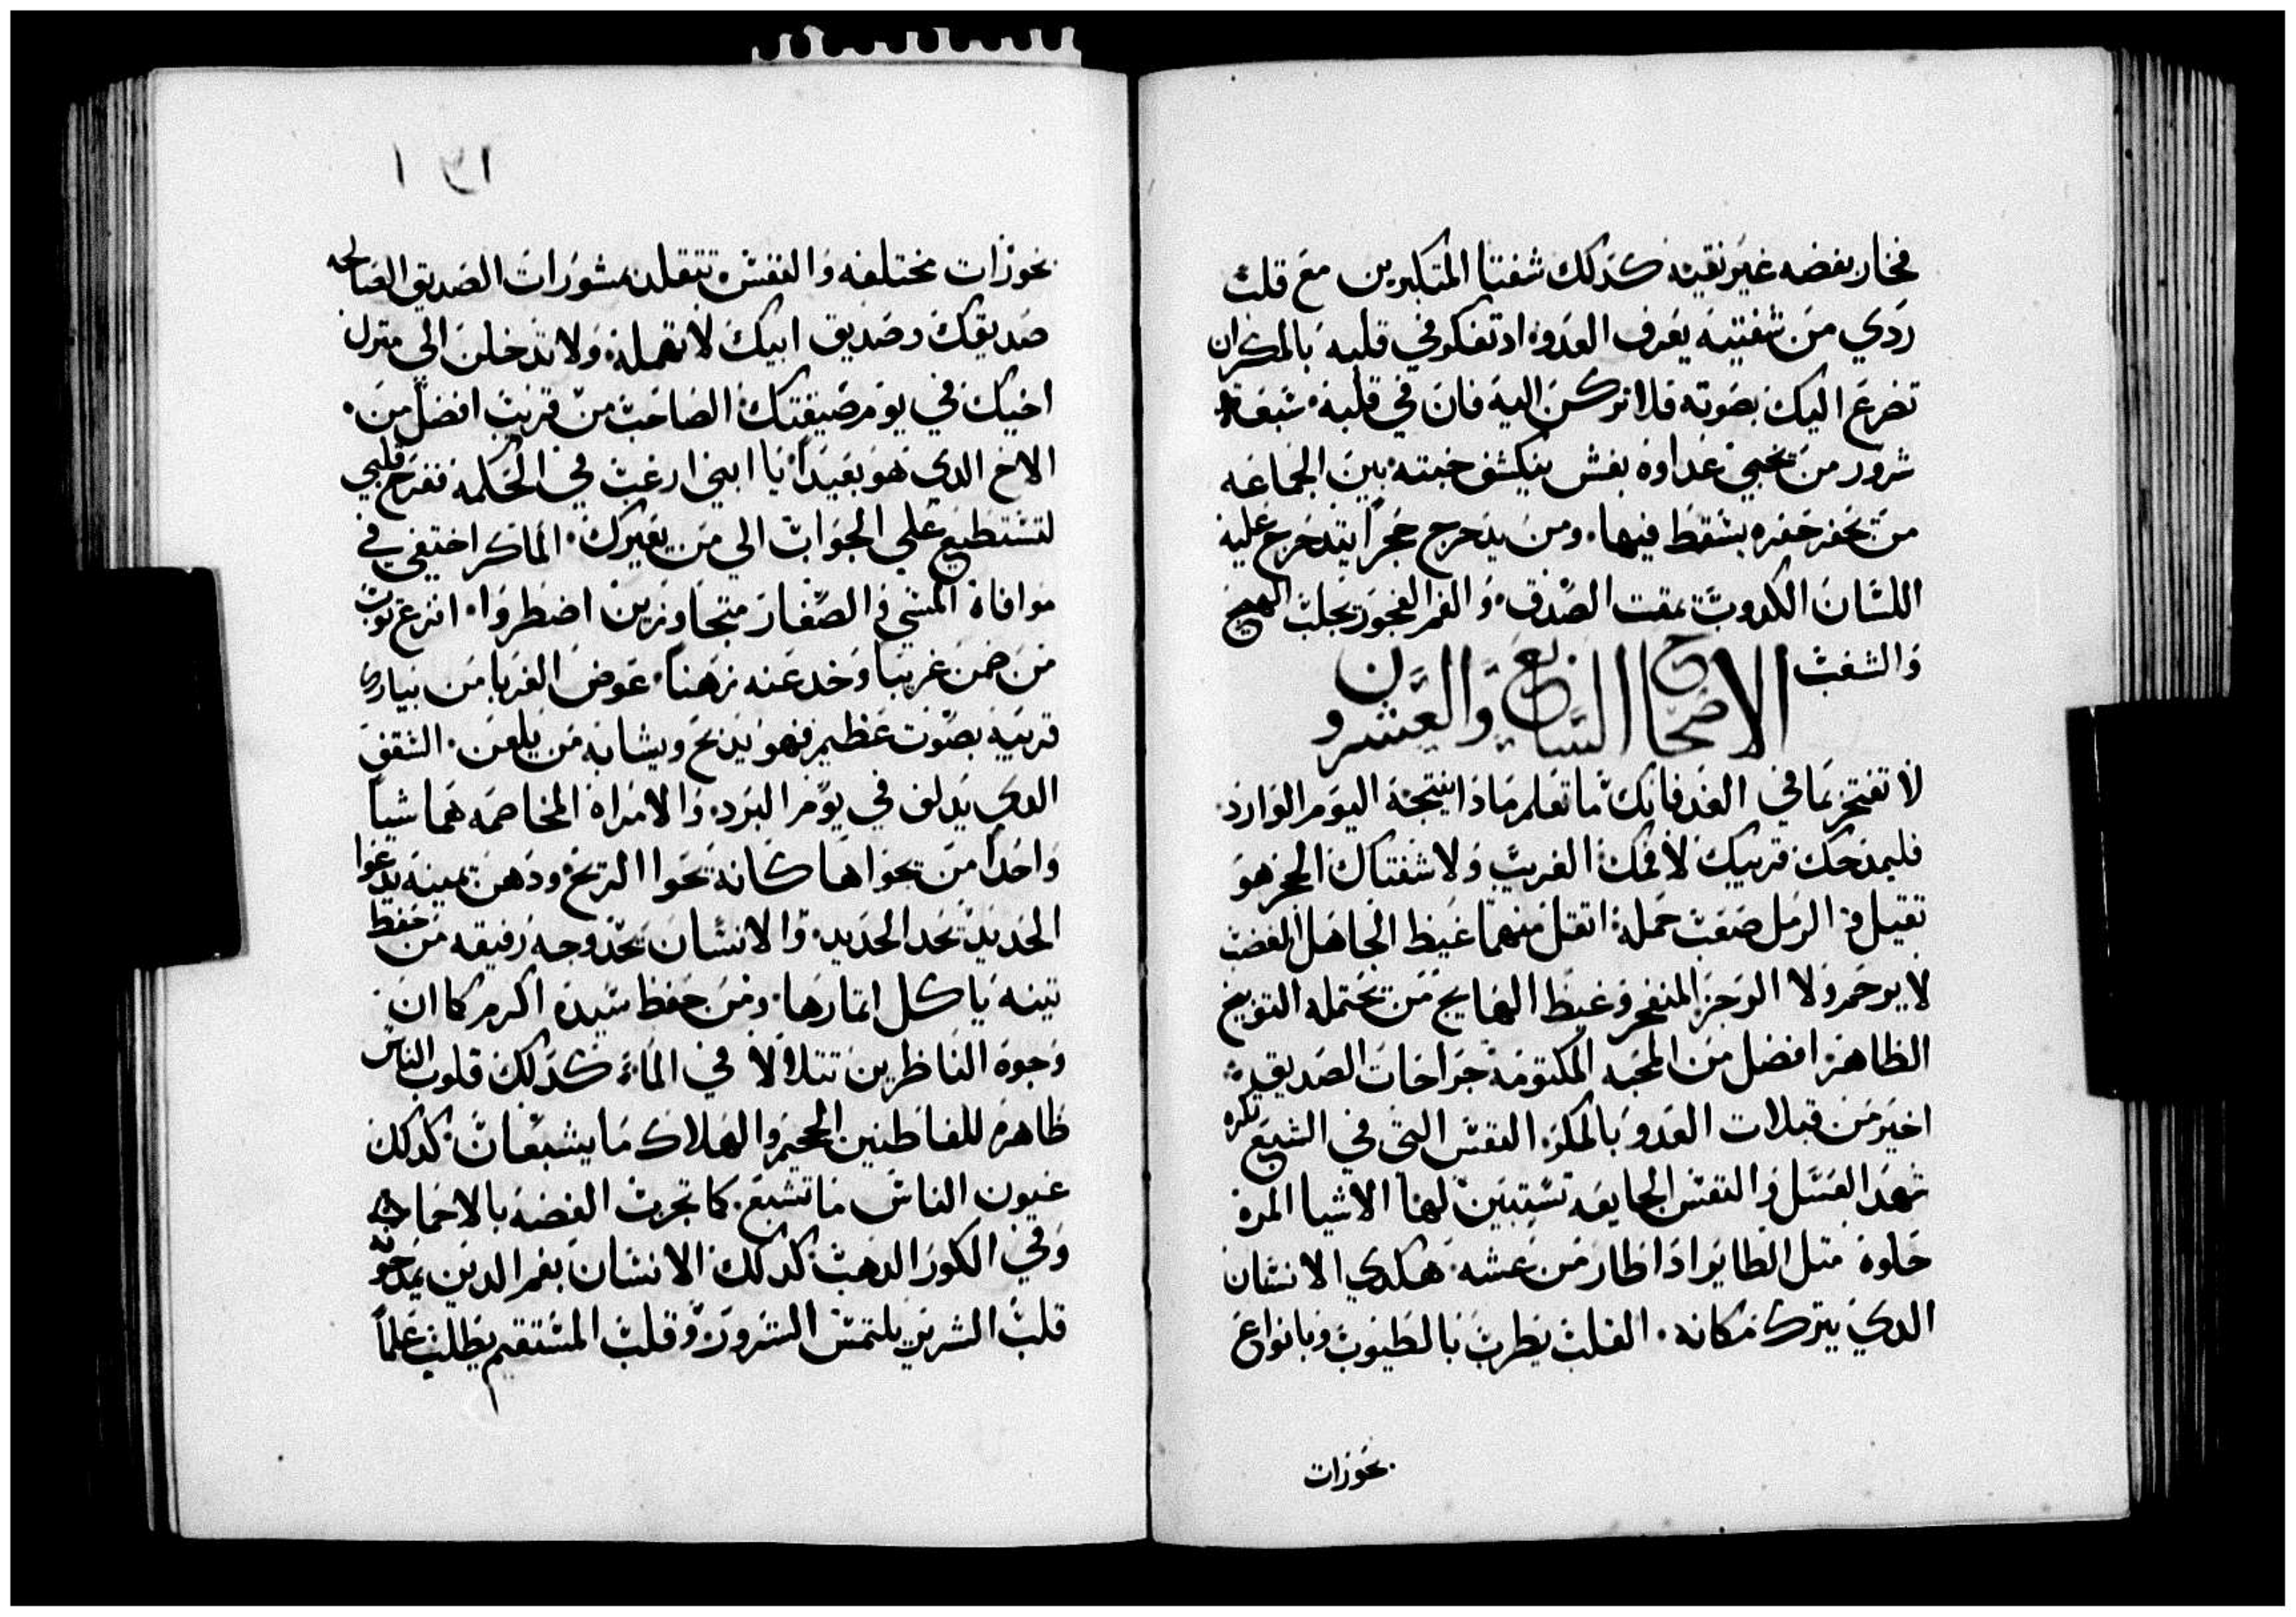 فخار بفضه غير نقيه كدلك شفتا المتكبرين مع قلب
ردي من شفتيه يعرف العدو اد تفكر في قلبه بالمكر ان
تضرع اليك بصوته فلا تركن اليه فان في قلبه سبعة
شرور من يخبي عداوه بغش ينكشف خبته بين الجماعه
من يحفر حفره يسقط فيها ومن يدحرج حجراً يتدحرج عليه
اللسان الكدوب يمقت الصدق والفم الفجور يجلب الهيج
والشغب الاصحاح السابع والعشرون
لا تفتخر بما في الغد فانك ما تعلم مادا ينتجه اليوم الوارد
فليمدحك قريبك لا فمك الغريب ولا شفتاك الحجر هو
تقيل والرمل صعب حمله اتقل منهما غيظ الجاهل الغضب
لا يرحم ولا الرجز المنفجر وغيظ الهايج من يحتمله التوبيخ
الظاهر افضل من المحبه المكتومه جراحات الصديق
اخير من قبلات العدو بالمكر النفس التي في الشبع تكره
شهد العسل والنفس الجايعه تستبين لها الاشيا المره
حلوه متل الطاير ادا طار من عشه هكدي الانسان
الدي يترك مكانه القلب يطرب بالطيوب وبانواع
بخورات
١٣١
بخورات مختلفه والنفس تتقلد بمشورات الصديق الصالحه
صديقك وصديق ابيك لا تهمله ولا تدخلن الي منزل
اخيك في يوم ضيقتك الصاحب من قريب افضل من
الاخ الدي هو بعيداً يا ابني ارغب في الحكمه ففرح قلبي
لتستطيع علي الجواب الي من يعيرك الماكر اختفي في
موافاة المشي والصغار متجاوزين اضطروا انزع توب
من ضمن غريباً وخد عنه رهناً عوض الغربا من يبارك
قريبه بصوت عظيم فهو يدبح ويشابه من يلعن السقف
الدي يدلف في يوم البرد والامراه المخاصمه هما شياً
واحداً من يحواها كانه يحوا الريح ودهن يمينه يدعوا
الحديد يحد الحديد والانسان يحد وجه رفيقه من حفظ
تينه ياكل اتمارها ومن حفظ سيده اكرم كما ان
وجوه الناظرين تتلالا في الماء كدلك قلوب الناس
ظاهره للفاطنين الجحيم والهلاك ما يشبعان كدلك
عيون الناس ما تشبع كما تجرب الفضه بالاحما
وفي الكور الدهب كدلك الانسان بفم الدين يمدحونه
قلب الشرير يلتمس الشرور وقلب المستقيم يطلب علماً